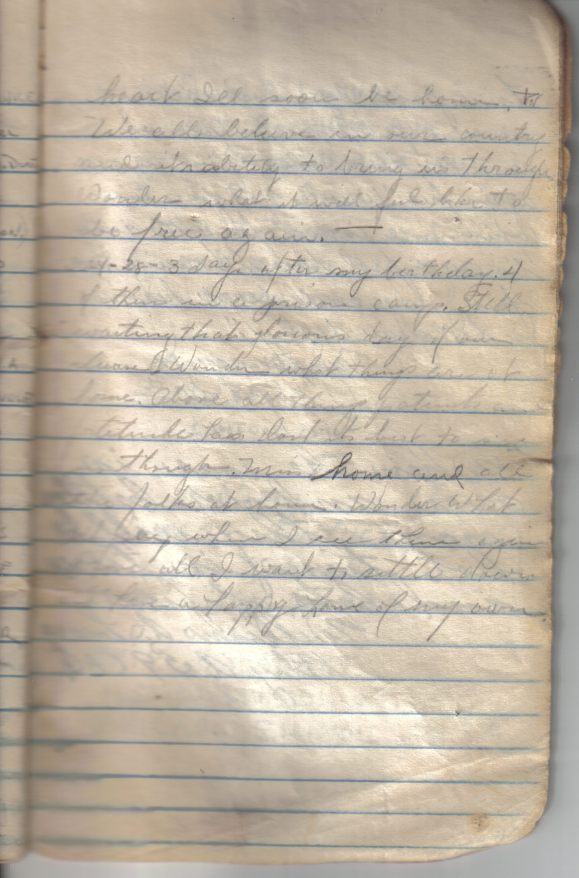 heart I'll soon be home. 
We all believe in our country
and its ability to bring us through
Wonder what it will feel like to
be free again. —
4-28- 3 days after my birthday. 4
of them in a prison camp. Still
waiting that glorious day of
I Wonder what things are at
home. Above all things
don't its best to
though. Miss home and all
the folks at home. Wonder What
say when I see them again
all I want to settle down
a happy home of my own.